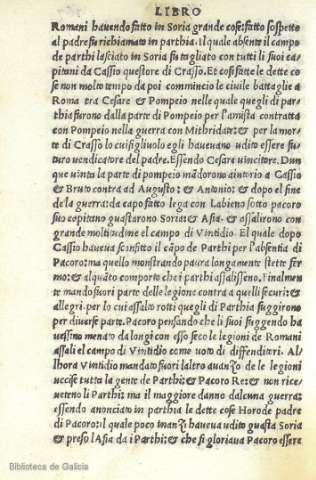 LIBRO
Romani havendo fatto in Soria grande cose: fatto sospetto
al padre fu richiamato in parthia. Il quale absente il campo
de parthi lasciato in Soria fu tagliato con tutti li suoi ca-
pitani da Cassio questore di Crasso. Et cosi fatte le dette co
se non molto tempo da poi commincio le civile battaglie a
Roma tra Cesare & Pompeio nelle quale quegli di par-
thia furono dalla parte di Pompeio per l'amista contratta
con Pompeio nella guerra con Mithridate: & per la mor-
te di Crasso lo cui figliuolo egli havevano udito essere fu
turo vendicatore del padre. Essendo Cesare vincitore. Dun
que vinta la parte di pompeio mãdorono aiutorio a Cassio
& Bruto contra ad Augusto: & Antonio: & dopo el fine
de la guerra: da capo fatto lega con Labieno sotto pacoro
suo capitano guastarono Soria: & Asia. & assalirono con
grande moltitudine el campo di Vintidio. El quale dopo
Cassio haveva sconfitto il cãpo de Parthi per l'absentia di
Pacoro: ma quello monstrando paura longamente stette fer
mo: & alquãto comporte che i parthi assalisseno. Finalmen
te mando fuori parte delle legioni contra a quelli securi: &
allegri. per lo cui assalto rotti quegli di Parthia fuggirono
per diverse parte. Pacoro pensando che li suoi fuggendo ha
vessino menato da longi con esso seco le legioni de Romani
assali el campo di Vintidio come voto di diffenditori. Al
lhora Vintidio mandato fuori l'altro avanzo de le legioni
uccise tutta la gente de Parthi: & Pacoro Re: & non rice
veteno li Parthi: mai il maggiore danno d'alcuna guerra:
essendo anonciato in parthia le dette cose Horode padre
di Pacoro: il quale poco inanzi haveva udito guasta Soria
& preso l'Asia da i Parthi: & che si gloriava Pacoro essere
Biblioteca de Galicia